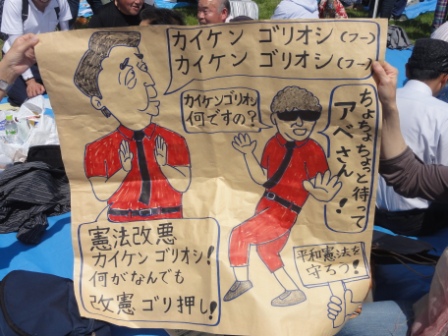 カイケン ゴリオシ(フー)
カイケン ゴリオシ(フー)
カイケンゴリオシ
何ですの?
ちょちょちょっと待って
アベさん!
憲法改悪
カイケン ゴリオシ!
何がなんでも
改憲 ゴリ押し!
平和憲法を
守ろう!